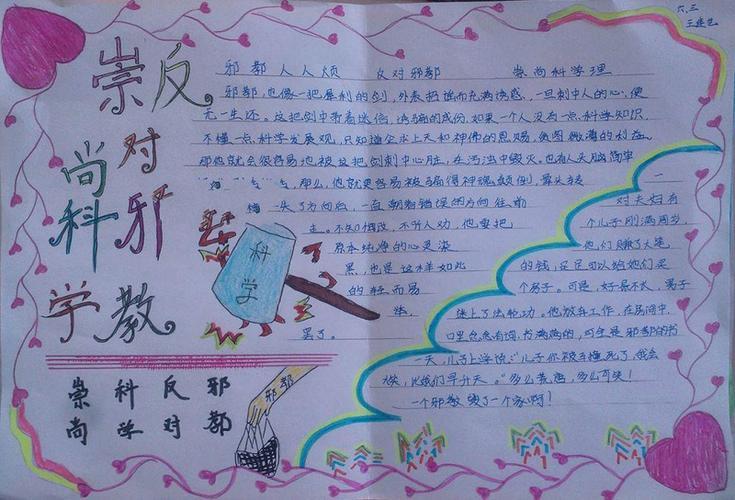 六.三
崇尚科学
反对邪教
邪教人人烦 反对邪教 崇尚科学理
邪教,也像一把犀利的剑,外表华丽而充满诱惑,一旦刺中人的心,便
无一生还。这把剑中带着迷信,诱骗的成份,如果一个人没有一点科学知识,
不懂一点科学发展观,只知道企求上天和神佛的恩赐,贪图微薄的利益,
那他就会很容易地被这把剑刺中心脏,在污浊中毁灭。也有人头脑简单
那么,他就更容易被骗得神魂颠倒,晕头转
一头了方向后,一直朝着错误的方向往前
走。不知悔改,不听人劝,他要把
原本纯净的心灵染
黑,也是这样如此
的轻而易
举
罢了。
科学
一
对夫妇有
个儿子刚满周岁,
他们赚了大笔
的钱,足足可以给她们买
个房子。可是,好景不长,妻子
迷上了法轮功。他放弃工作,在房间中,
口里念念有词,书满满的,可全是邪教的书
一天,儿子上学说:"儿子你被车撞死了,我会
快,让我们早升天。"多么荒唐,多么可笑!
一个邪教毁了一个家啊!
崇尚科学反对邪教
邪教